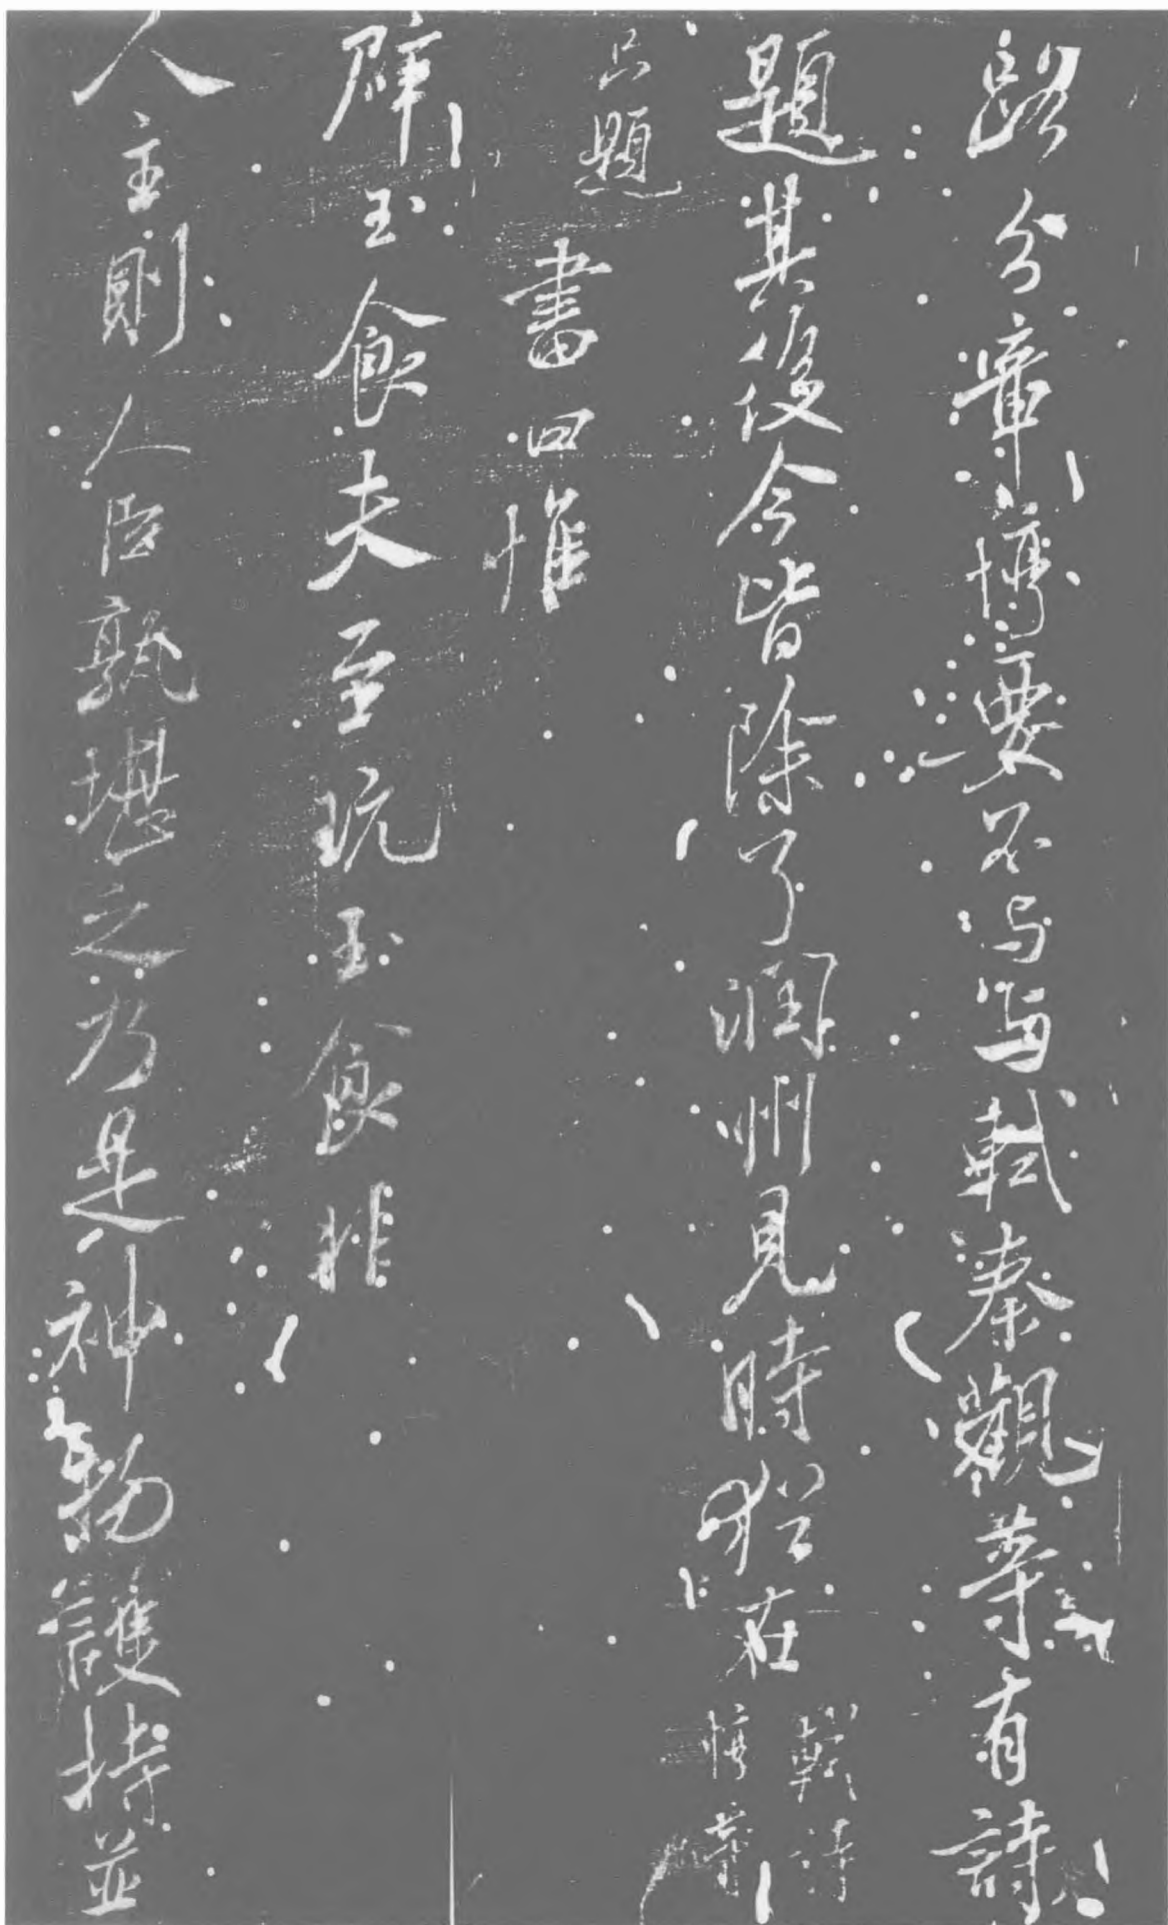 路分章惇要不与写軾秦觀等有詩
題其後今皆除了潤州見時猶在軾詩惇等
只題書曰惟
辟玉食夫至玩玉食非
人主則人臣孰堪之乃是神物護持並